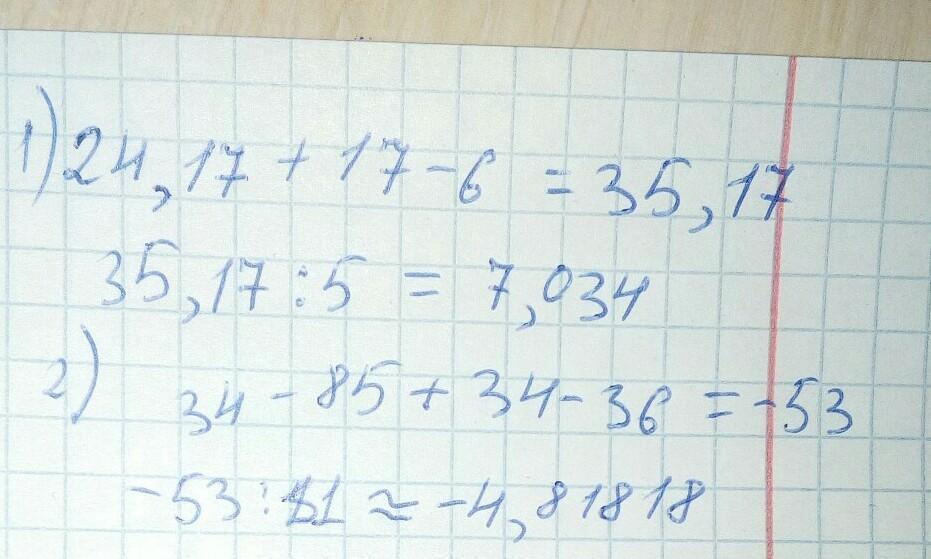 1) 24,17 + 17 - 6 = 35,17
35,17 : 5 = 7,034
2) 34 - 85 + 34 - 36 = -53
-53 : 11 ≈ -4,81818